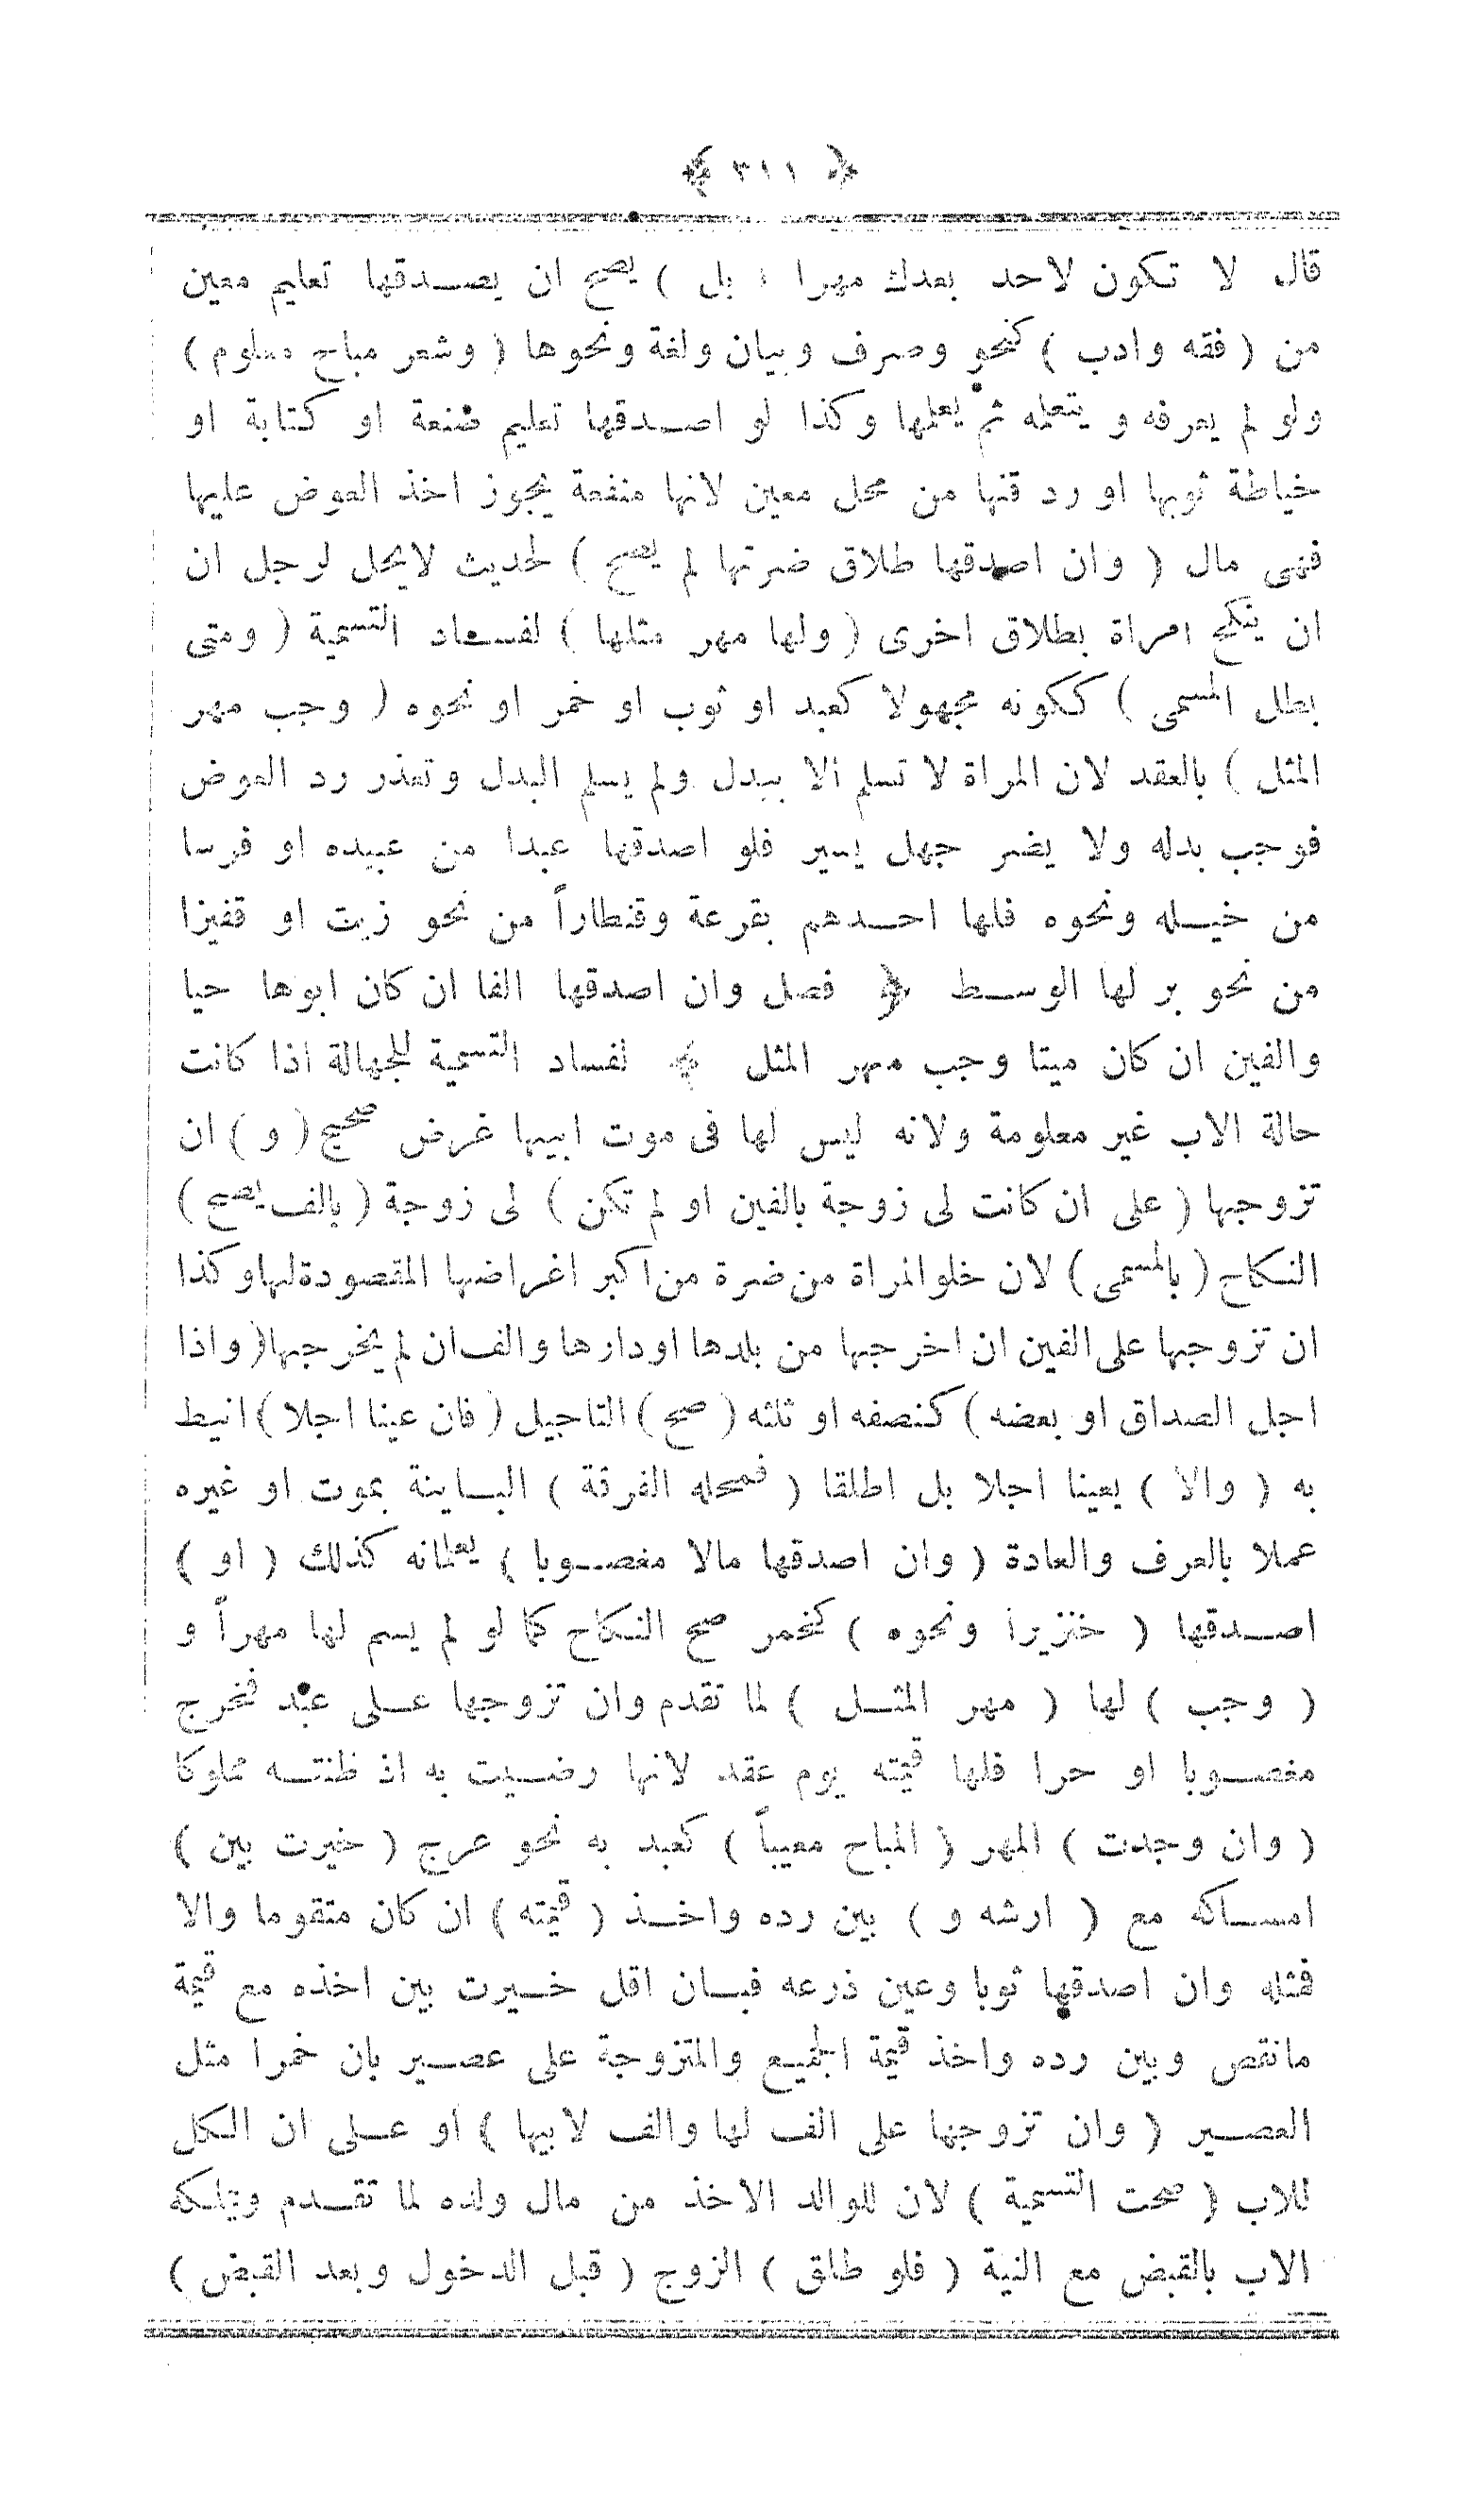 ﴿ ٣١١ ﴾
قال لا تكون لاحد بعدك مهرا ( بل ) يصح ان يصدقها تعليم معين
من ( فقه وادب ) كنحو وصرف وبيان ولغة ونحوها ( وشعر مباح معلوم )
ولو لم يعرفه ويتعلمه ثم يعلمها وكذا لو اصدقها تعليم صنعة او كتابة او
خياطة ثوبها او رد قنها من محل معين لانها منفعة يجوز اخذ العوض عليها
فهى مال ( وان اصدقها طلاق ضرتها لم يصح ) لحديث لايحل لرجل ان
ان ينكح امراة بطلاق اخرى ( ولها مهر مثلها ) لفساد التسمية ( ومتى
بطل المسمى ) ككونه مجهولا كعبد او ثوب او خمر او نحوه ( وجب مهر
المثل ) بالعقد لان المراة لا تسلم الا ببدل ولم يسلم البدل وتعذر رد العوض
فوجب بدله ولا يضر جهل يسير فلو اصدقها عبدا من عبيده او فرسا
من خيله ونحوه فلها احدهم بقرعة وقنطاراً من نحو زيت او قفيزا
من نحو بر لها الوسط ﴿ فصل وان اصدقها الفا ان كان ابوها حيا
والفين ان كان ميتا وجب مهر المثل ﴾ لفساد التسمية للجهالة اذا كانت
حالة الاب غير معلومة ولانه ليس لها فى موت ابيها غرض صحيح ( و ) ان
تزوجها ( على ان كانت لى زوجة بالفين او لم تكن ) لى زوجة ( بالف يصح )
النكاح ( بالمسمى ) لان خلو المراة من ضرة من اكبر اغراضها المقصودة لها وكذا
ان تزوجها على الفين ان اخرجها من بلدها او دارها والف ان لم يخرجها ( واذا
اجل الصداق او بعضه ) كنصفه او ثلثه ( صح ) التاجيل ( فان عينا اجلا ) انيط
به ( والا ) يعينا اجلا بل اطلقا ( فمحله الفرقة ) الباينة بموت او غيره
عملا بالعرف والعادة ( وان اصدقها مالا مغصوبا ) يعلمانه كذلك ( او )
اصدقها ( خنزيرا ونحوه ) كخمر صح النكاح كما لو لم يسم لها مهراً و
( وجب ) لها ( مهر المثل ) لما تقدم وان تزوجها على عبد فخرج
مغصوبا او حرا فلها قيمته يوم عقد لانها رضيت به اذ ظنته مملوكا
( وان وجدت ) المهر ( المباح معيباً ) كعبد به نحو عرج ( خيرت بين )
امساكه مع ( ارشه و ) بين رده واخذ ( قيمته ) ان كان متقوما والا
فمثله وان اصدقها ثوبا وعين ذرعه فبان اقل خيرت بين اخذه مع قيمة
مانقص وبين رده واخذ قيمة الجميع والمتزوجة على عصير بان خمرا مثل
العصير ( وان تزوجها على الف لها والف لابيها ) او على ان الكل
للاب ( صحت التسمية ) لان للوالد الاخذ من مال ولده لما تقدم ويملكه
الاب بالقبض مع النية ( فلو طلق ) الزوج ( قبل الدخول وبعد القبض )